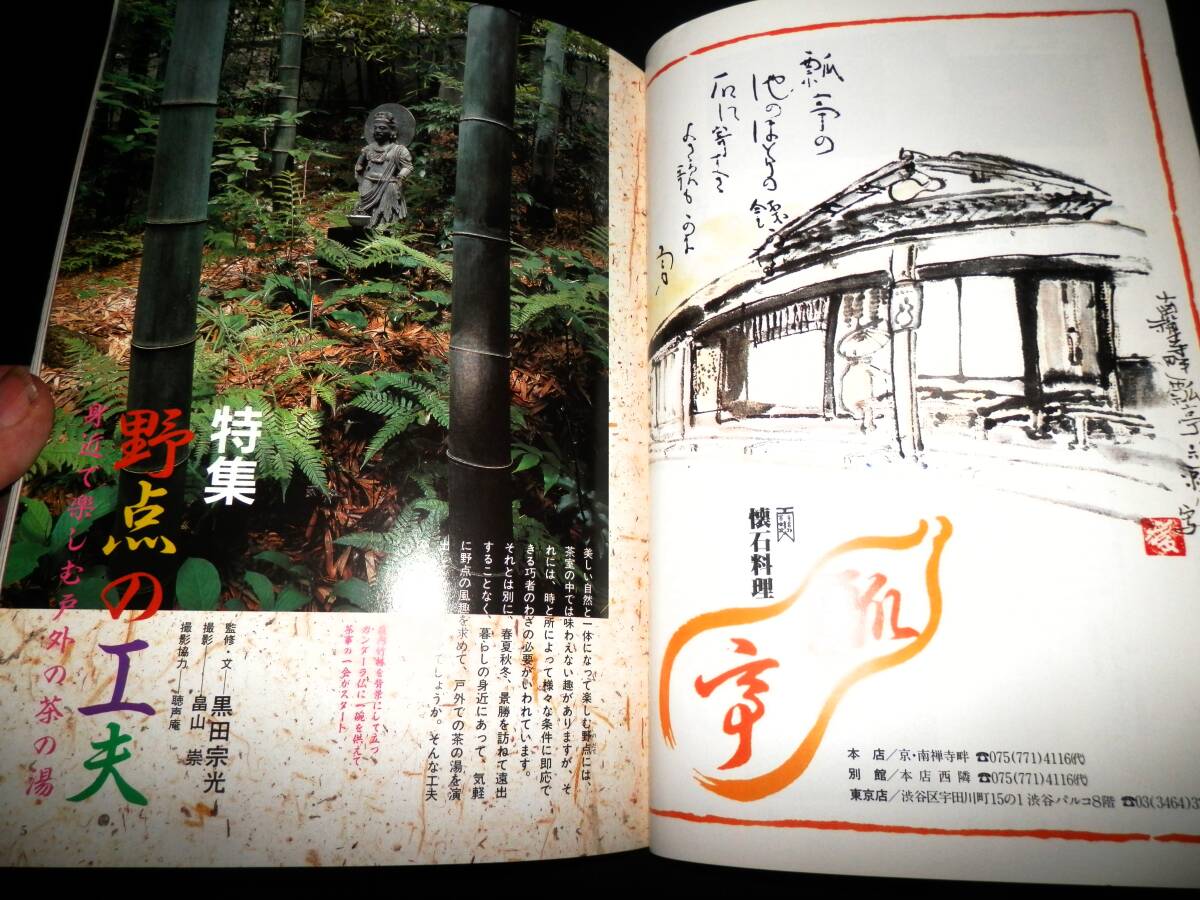 特集
野点の工夫
身近で楽しむ戸外の茶の湯
監修・文―黒田宗光
撮影―畠山 崇
撮影協力―聴声庵
竹林を背景にして立つ
ガンダーラ仏に一碗を供えて
茶事の一会がスタート
美しい自然と一体になって楽しむ野点には、
茶室の中では味わえない趣がありますが、そ
れには、時と所によって様々な条件に即応で
きる巧者のわざの必要がいわれています。
それとは別に、春夏秋冬、景勝を訪ねて遠出
することなく、暮らしの身近にあって、気軽
に野点の風趣を求めて、戸外での茶の湯を演
てしょうか。そんな工夫
5
瓢亭の
池のほとりの
石に寄
歌も
懐石料理
瓢
亭
本店/京・南禅寺畔 ☎075(771)4116㈹
別館/本店西隣 ☎075(771)4116㈹
東京店/渋谷区宇田川町15の1 渋谷パルコ8階 ☎03(3464)3